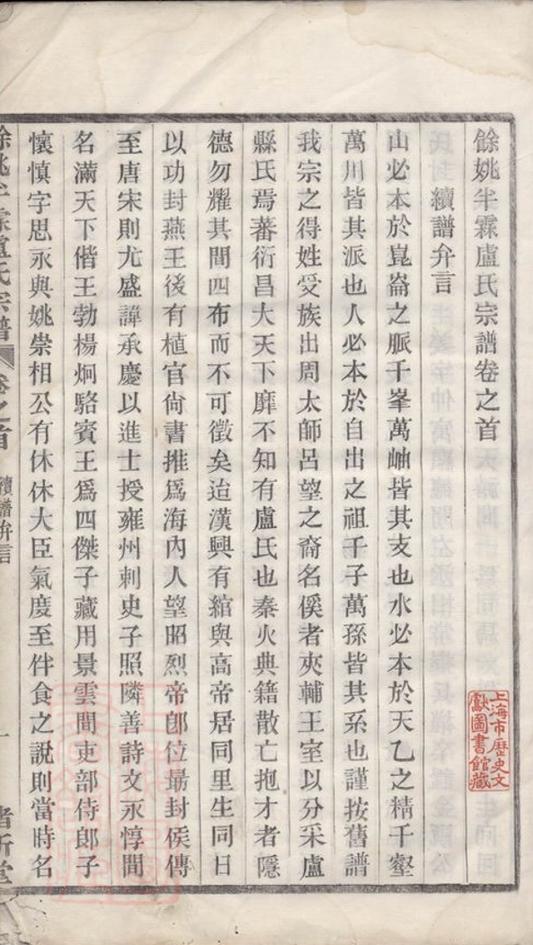 餘姚半霖盧氏宗譜卷之首
續譜弁言
山必本於崑崙之脈千峯萬岫皆其支也水必本於天乙之精千壑
萬川皆其派也人必本於自出之祖千子萬孫皆其系也謹按舊譜
我宗之得姓受族出周太師呂望之裔名傒者夾輔王室以分采盧
縣氏焉蕃衍昌大天下靡不知有盧氏也秦火典籍散亡抱才者隱
德勿耀其間四布而不可徵矣迨漢興有綰與高帝居同里生同日
以功封燕王後有植官尙書推爲海內人望昭烈帝卽位最封侯傳
至唐宋則尤盛諱承慶以進士授雍州刺史子照隣善詩文永惇間
名滿天下偕王勃楊炯駱賓王爲四傑子藏用景雲間吏部侍郎子
懷慎字思永與姚崇相公有休休大臣氣度至伴食之說則當時名
餘姚半霖盧氏宗譜 卷之首 續譜弁言 一
上海市歷史文
獻圖書館藏